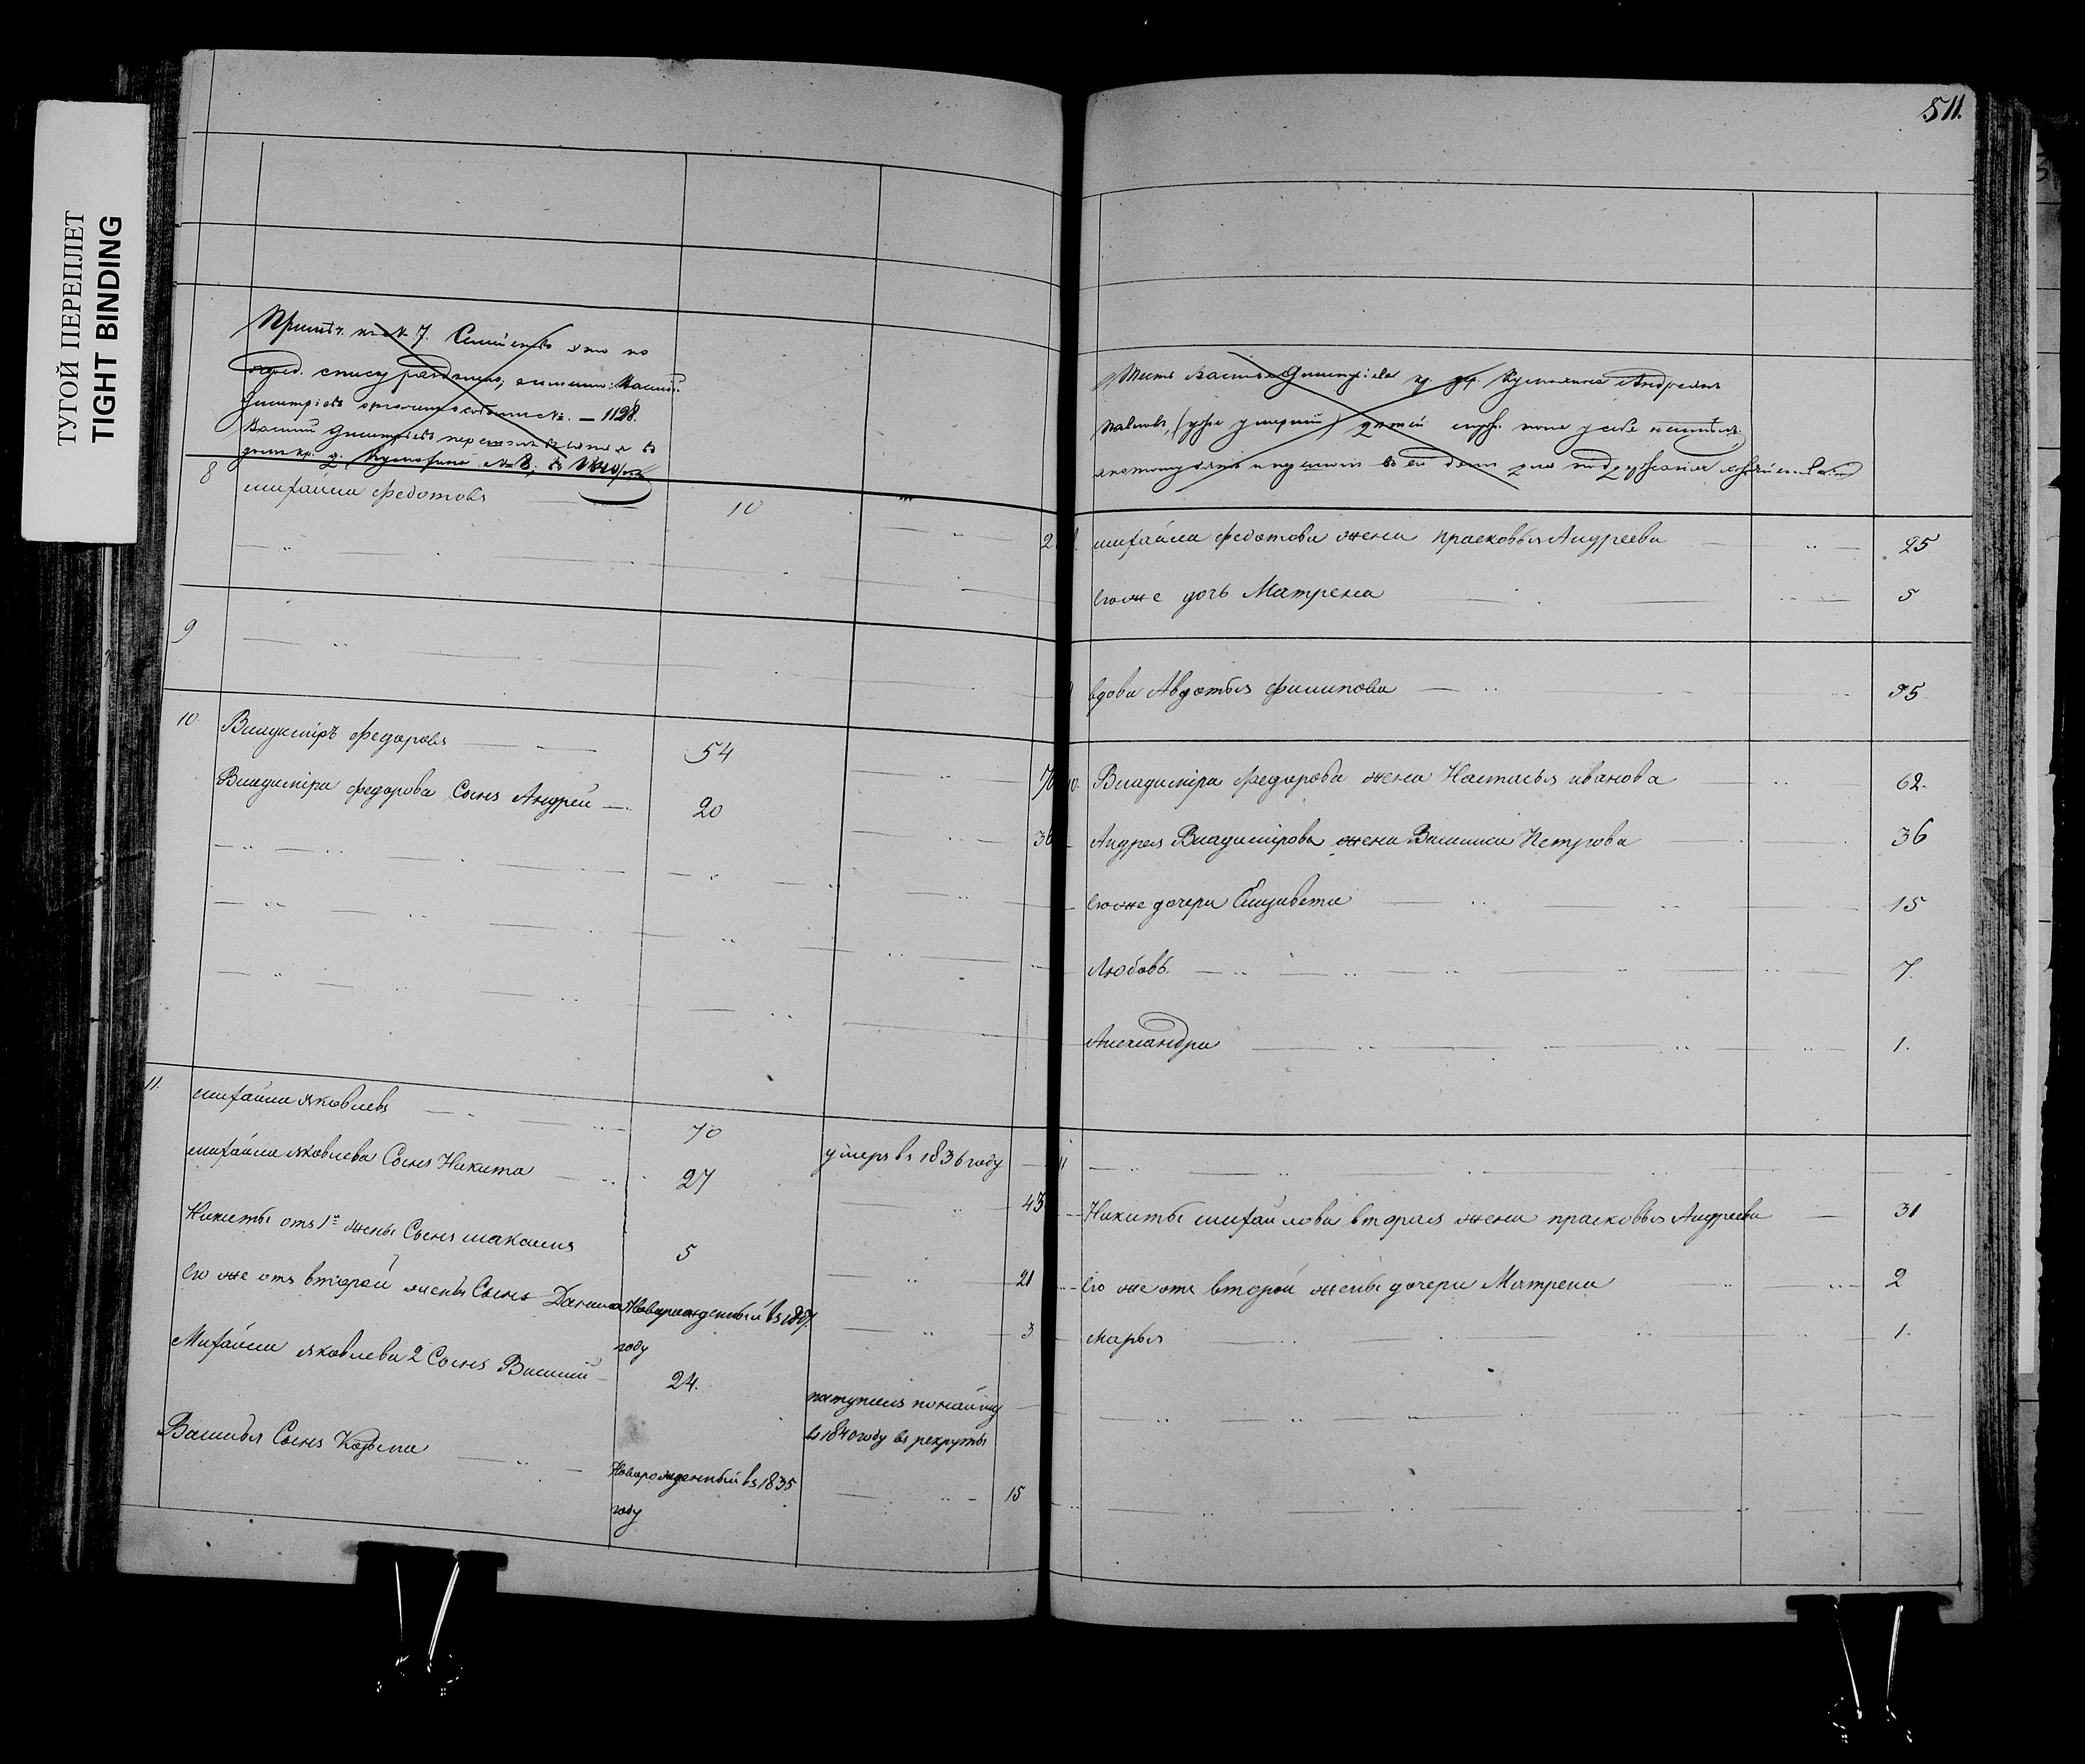 ТУГОЙ ПЕРЕПЛЕТ
TIGHT BINDING
Примѣч. къ № 7. Семейство это по
списку раздѣлено, а именно: Васил.
Дмитріевъ № — 1128.
Василий Дмитріевъ
8 михайла Федотовъ 10 2
9
10. Владимiръ Федоровъ 54 70
Владимiра Федорова Сынъ Андрей 20 36
11. михайла Яковлевъ 70 умеръ въ 1836 году
михайла Яковлева Сынъ Никита 27 43
Никиты отъ 1й жены Сынъ макаимъ 5 21
Его же отъ второй жены Сынъ Данила Новорожденный въ 1847 году 3
Михайлы Яковлева 2 Сынъ Василий 24. поступилъ по найму въ 1840 году въ рекруты
Василья Сынъ Козьма Новорожденный въ 1835 году 15
511.
Тесть Василья Дмитріева кр. дер. Андреянъ
(уже умерший) детей
8. михайла Федотова жена прасковья Андреева 25
Его же дочь Матрена 5
9 вдова Авдотья Филипова 35
10. Владимiра Федорова жена Настасья иванова 62.
Андрея Владимiрова жена Василиса Петрова 36
Его же дочери Елизавета 15
Любовь 7.
Александра 1.
11
Никиты михайлова вторая жена прасковья Андреева 31
Его же отъ второй жены дочери Матрена 2
марья 1.